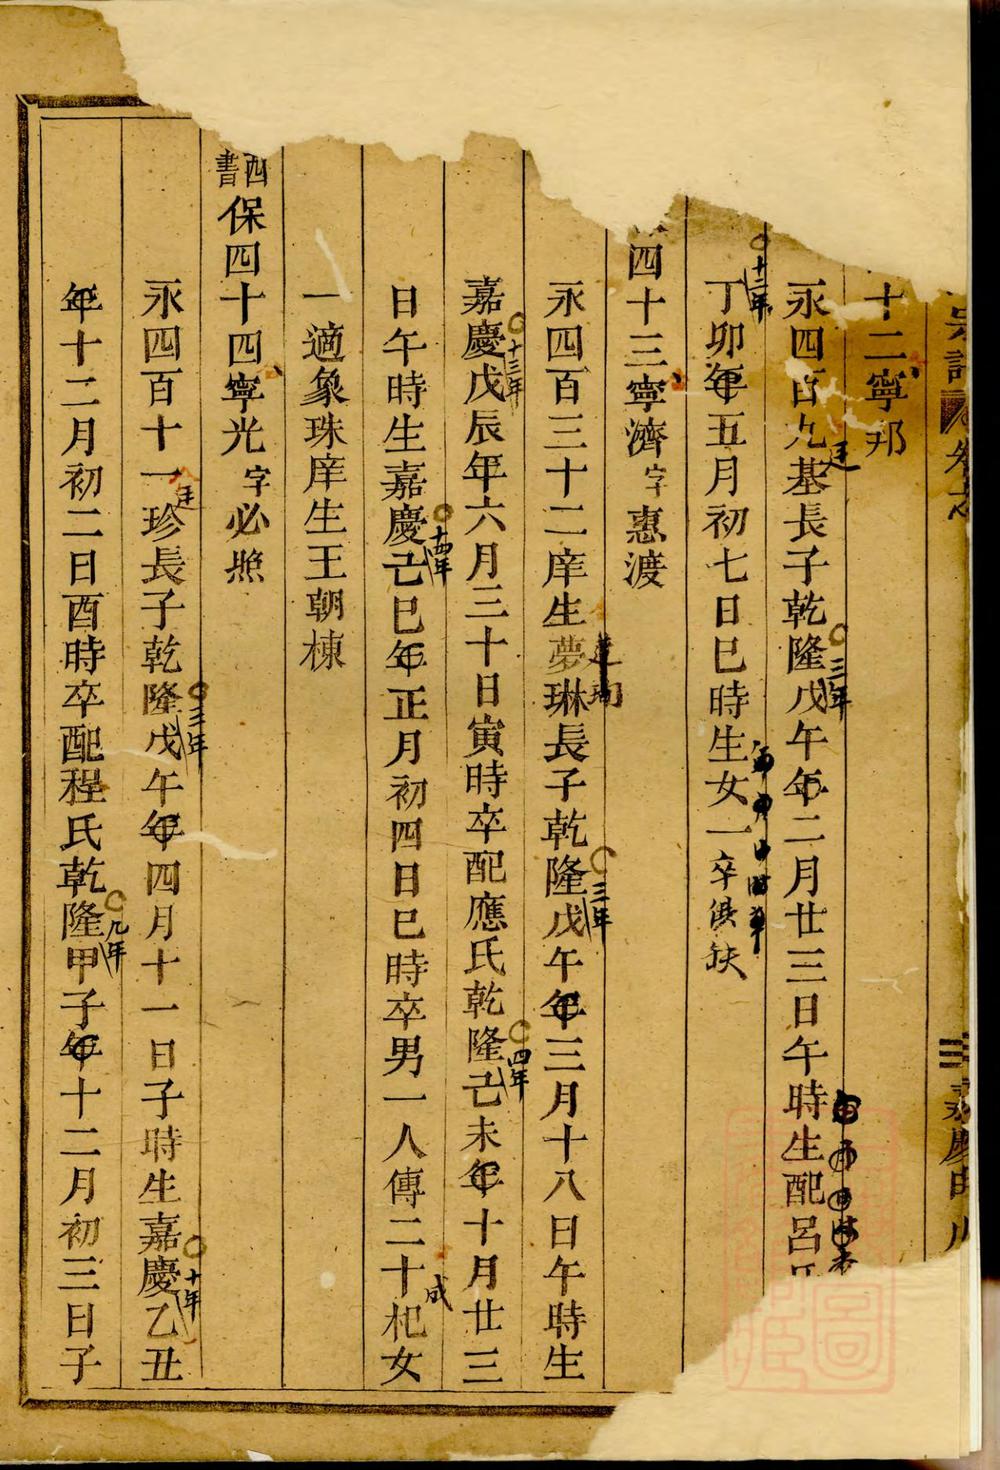 宗譜
卷之
嘉慶
十二寧邦
永四百九基長子乾隆戊午年二月廿三日午時生配呂氏
廷
三年
十二年
丁卯年五月初七日巳時生女一卒俱缺
四十三寧濟字惠渡
永四百三十二庠生夢琳長子乾隆戊午年三月十八日午時生
三年
嘉慶戊辰年六月三十日寅時卒配應氏乾隆己未年十月廿三
十三年
四年
日午時生嘉慶己巳年正月初四日巳時卒男一人傳二十杞女
十四年
成
一適象珠庠生王朝棟
四書保四十四寧光字必照
永四百十一珍長子乾隆戊午年四月十一日子時生嘉慶乙丑
廷
三年
十年
年十二月初二日酉時卒配程氏乾隆甲子年十二月初三日子
九年